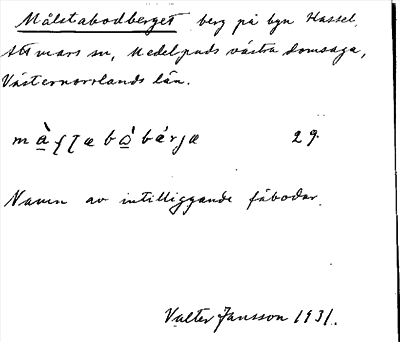 Målstabodberget berg på byn Hassel,
Attmars sn, Medelpads västra domsaga,
Västernorrlands län.
29.
Namn av intilliggande fäbodar.
Valter Jansson 1931.